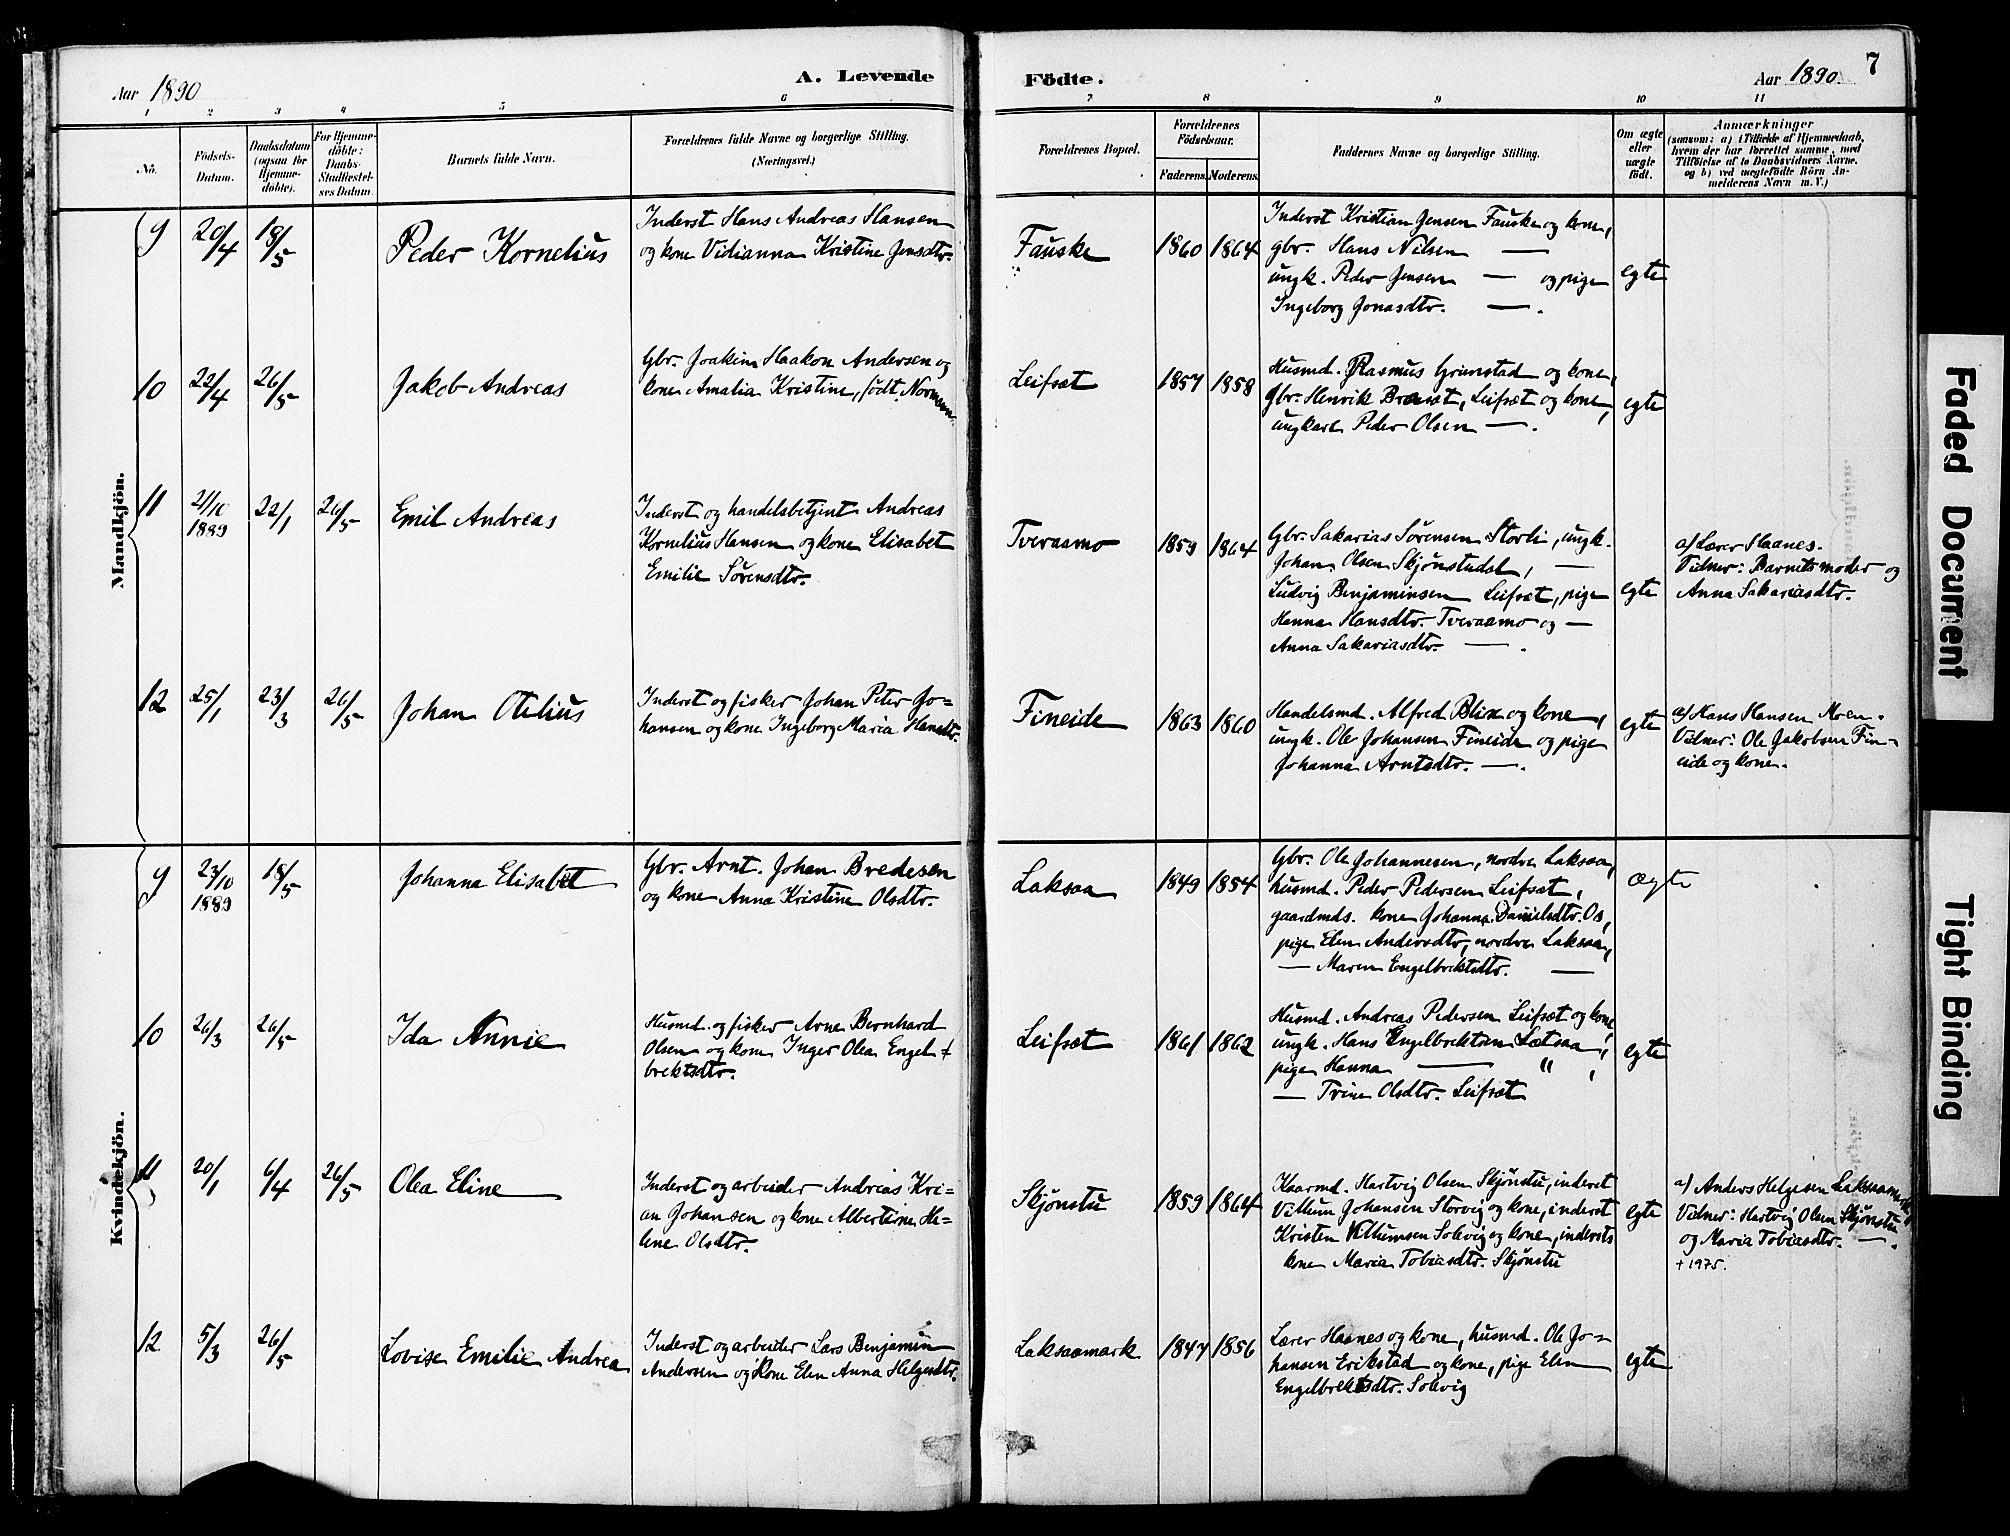 Aar 1890
A. Levende
Födte.
Aar 1890.
7
1 2 3 4 5 6 7 8 9 10 11
No.
Födsels-
Datum.
Daabsdatum
(ogsaa for
Hjemme-
döbte).
For Hjemme-
döbte:
Daabs-
Stadfæstel-
ses Datum.
Barnets fulde Navn.
Forældrenes fulde Navne og borgerlige Stilling.
(Næringsvei.)
Forældrenes Bopæl.
Forældrenes
Födselsaar.
Faderens.
Moderens.
Faddernes Navne og borgerlige Stilling.
Om ægte
eller
uægte
födt.
Anmærkninger
(saasom: a) i Tilfælde af Hjemmedaab,
hvem der har forrettet samme, med
Tilföielse af to Daabsvidners Navne,
og b) ved uægtefödte Börn An-
melderens Navn m. V.)
Mandkjön.
9 20/4 18/5 Peder Kornelius
Inderst Hans Andreas Hansen
og kone Vidianna Kristine Jensdtr.
Fauske 1860 1864
Inderst Kristian Jensen Fauske og kone,
gbr. Hans Nilsen —
ungk. Peder Jensen — og pige
Ingeborg Jonasdtr. — .
egte
10 22/4 26/5 Jakob Andreas
Gbr. Joakim Haakon Andersen og
kone Amalia Kristine, født Normann
Leifsæt 1857 1858
Husmd. Rasmus Grimstad og kone,
Gbr. Henrik Braset, Leifsæt og kone,
ungkarl Peder Olsen — .
egte
11 21/10 1889 22/1 26/5 Emil Andreas
Inderst og handelsbetjent Andreas
Kornelius Hansen og kone Elisabet
Emilie Sørensdtr.
Tveraamo 1859 1864
Gbr. Sakarias Sørensen Storli, ungk.
Johan Olsen Skjønstudal, —
Ludvig Benjaminsen Leifsæt, pige
Hanna Hansdtr. Tveraamo og —
Anna Sakariasdtr. — .
egte
a) Lærer Haanes.
Vidner: Barnets moder og
Anna Sakariasdtr.
12 25/1 23/3 26/5 Johan Otelius
Inderst og fisker Johan Peter Jo=
hansen og kone Ingeborg Maria Hansdtr.
Fineide 1863 1860
Handelsmd. Alfred Blix og kone,
ungk. Ole Johansen Fineide og pige
Johanna Arntsdtr. — .
egte
a) Hans Hansen Moen.
Vidner: Ole Jakobsen Fin-
eide og kone.
Kvindekjön.
9 23/10 1889 18/5 Johanna Elisabet
Gbr. Arnt Johan Bredesen
og kone Anna Kristine Olsdtr.
Laksaa 1849 1854
Gbr. Ole Johannesen, nordre Laksaa,
husmd. Peder Pedersen Leifsæt,
gaardmds. kone Johanna Danielsdtr. Os,
pige Elen Andersdtr, nordre Laksaa,
— Maren Engelbrektsdtr. —
ægte
10 26/3 26/5 Ida Annie
Husmd. og fisker Arne Bernhard
Olsen og kone Inger Olea Engel=
brektsdtr.
Leifsæt 1861 1862
Husmd. Andreas Pedersen Leifsæt og kone,
ungk. Hans Engelbrektsen Laksaa,
pige Hanna — " ,
— Trine Olsdtr. Leifsæt
egte
11 20/1 6/4 26/5 Olea Eline
Inderst og arbeider Andreas Kri=
an Johansen og kone Albertine He=
line Olsdtr.
Skjønstu 1859 1864
Kaarmd. Hartvig Olsen Skjønstu, inderst
Villum Johansen Storvig og kone, inderst
Kristen Villumsen Solvig og kone, indersts
kone Maria Tobiasdtr. Skjønstu
egte
a) Anders Helgesen Laksaamark,
Vidner: Hartvig Olsen Skjønstu
og Maria Tobiasdtr. — .
+ 1975.
12 5/3 26/5 Lovise Emilie Andrea
Inderst og arbeider Lars Benjamin
Andersen og kone Elen Anna Helgesdtr.
Laksaamark 1847 1856
Lærer Haanes og kone, husmd. Ole Jo=
hansen Erikstad og kone, pige Elen
Engelbrektsdtr. Solvig
egte
Faded Document
Tight Binding